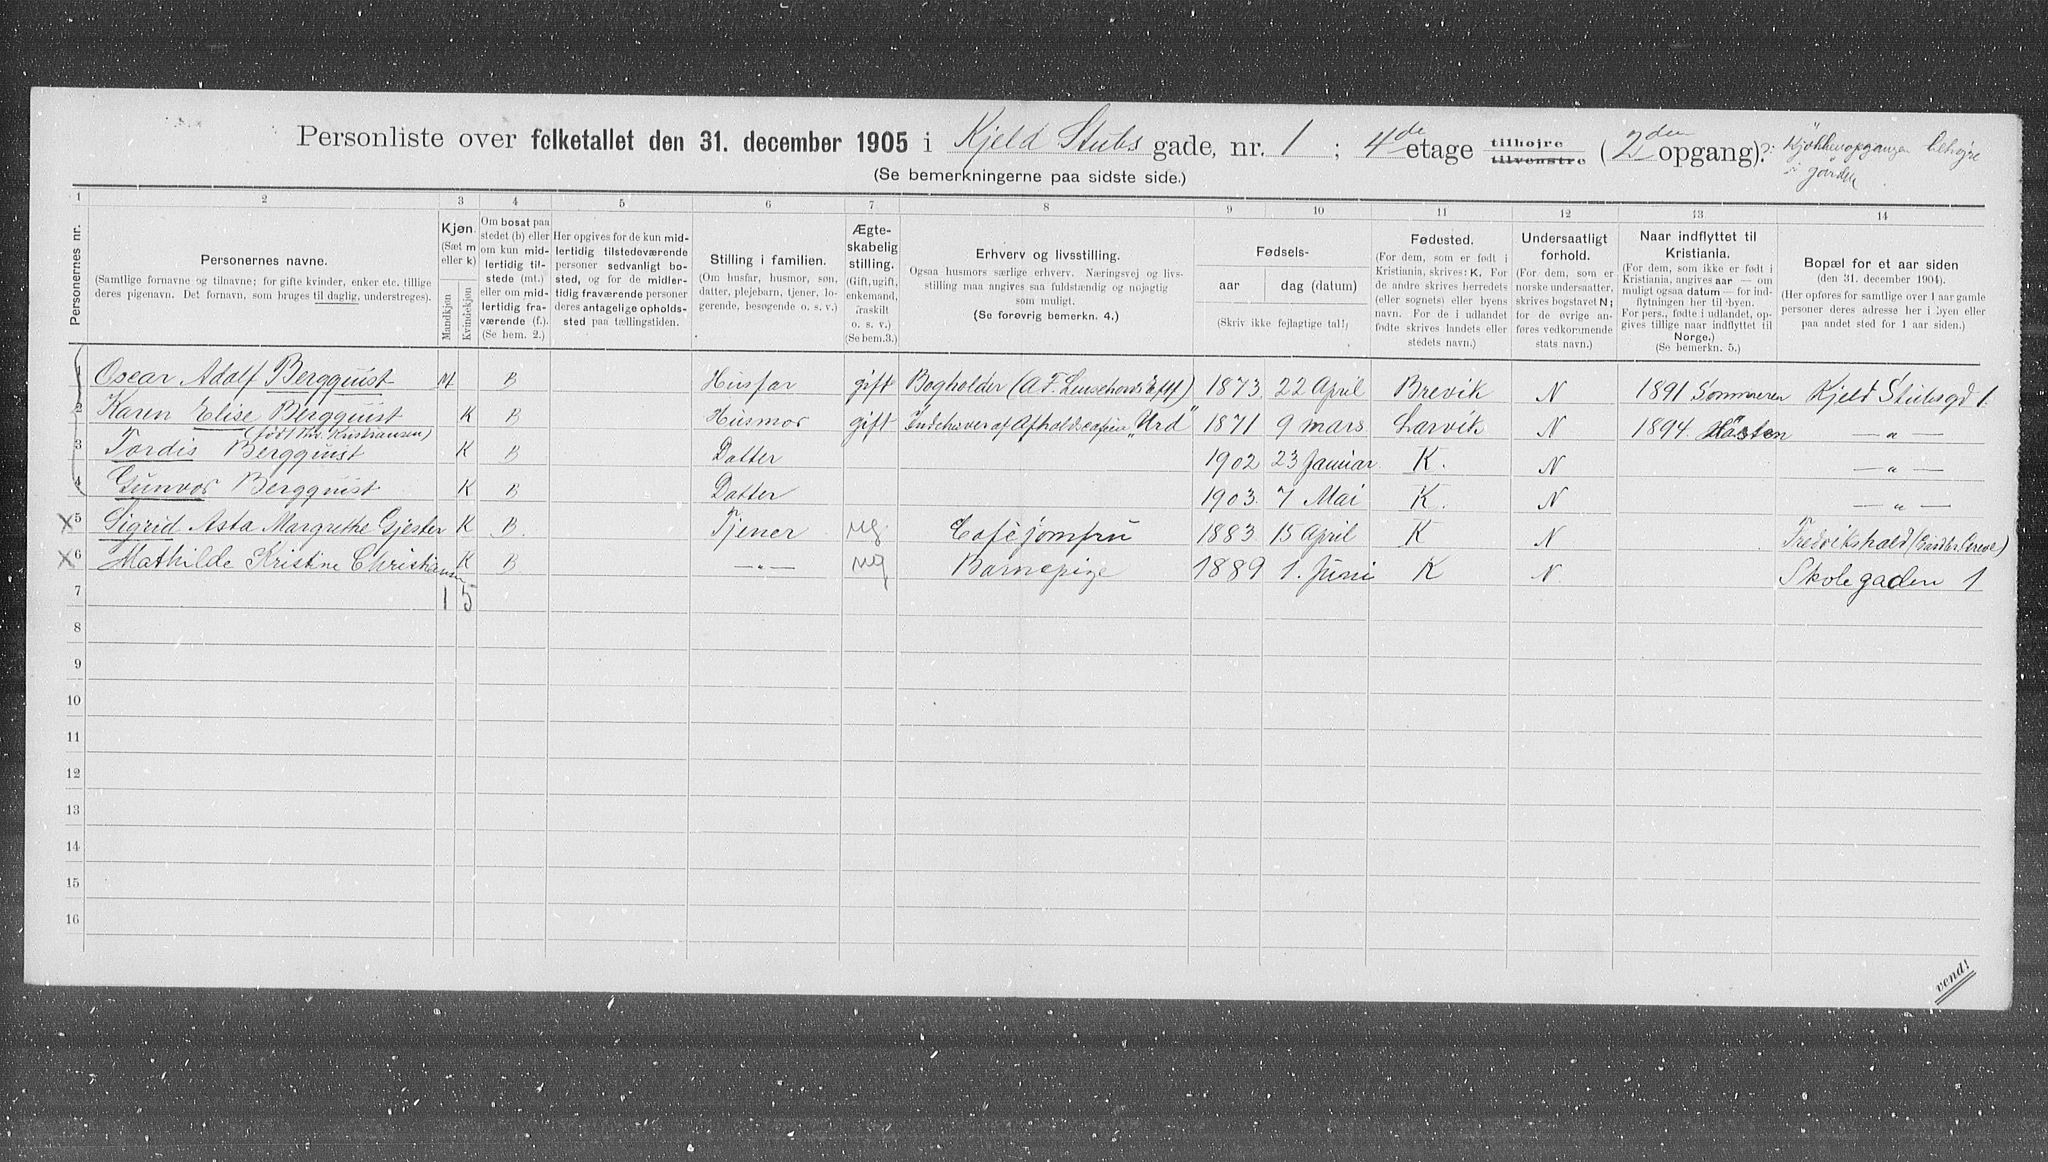 Personliste over folketallet den 31. december 1905 i Kjeld Stubs gade, nr. 1 ; 4de etage tilhøjre tilvenstre (2den opgang)?: Kjøkkenopgangen tilhøjre
i gården
(Se bemerkningerne paa sidste side.)
1 2 3 4 5 6 7 8 9 10 11 12 13 14
Personernes nr.
Personernes navne.
(Samtlige fornavne og tilnavne; for gifte kvinder, enker etc. tillige
deres pigenavn. Det fornavn, som bruges til daglig, understreges).
Kjøn.
(Sæt m
eller k)
Mandkjøn
Kvindekjøn
Om bosat paa
stedet (b) eller
om kun mid-
lertidig til-
stede (mt.)
eller om mid-
lertidig fra-
værende (f.).
(Se bem. 2.)
Her opgives for de kun mid-
lertidig tilstedeværende
personer sedvanlig bo-
sted, og for de midler-
tidig fraværende personer
deres antagelige opholds-
sted paa tællingstiden.
Stilling i familien.
(Om husfar, husmor, søn,
datter, plejebarn, tjener, lo-
gerende, besøgende o. s. v.)
Ægte-
skabelig
stilling.
(Gift, ugift,
enkemand,
fraskilt
o. s. v.)
(Se bem.3.)
Erhverv og livsstilling.
Ogsaa husmors særlige erhverv. Næringsvej og livs-
stilling maa angives saa fuldstændig og nøjagtig
som muligt.
(Se forøvrig bemerkn. 4.)
Fødsels-
aar dag (datum)
(Skriv ikke fejlagtige tal!)
Fødested.
(For dem, som er født i
Kristiania, skrives: K. For
de andre skrives herredets
(eller sognets) eller byens
navn. For de i udlandet
fødte skrives landets eller
stedets navn.)
Undersaatligt
forhold.
(For dem, som er
norske undersaatter,
skrives bogstavet N;
for de øvrige an-
føres vedkommende
stats navn.)
Naar indflyttet til
Kristiania.
(For dem, som ikke er født i
Kristiania, angives aar — om
muligt ogsaa datum — for ind-
flytningen her til byen.
For pers., fødte i udlandet, op-
gives tillige naar indflyttet til
Norge.)
(Se bemerkn. 5.)
Bopæl for et aar siden
(den 31. december 1904).
(Her opføres for samtlige over 1 aar gamle
personer deres adresse her i byen eller
paa andet sted for 1 aar siden.)
1 Oscar Adolf Bergquist M B Husfar gift Bogholder (A. F. Eftf) 1873 22 April Brevik N 1891 Sommeren Kjeld Stubsgd 1.
2 Karen Elise Bergquist K B Husmor gift Indehaver af Afholdscafeen "Urd" 1871 9 mars Larvik N 1894 Høsten — „ —
(født Kristiansen)
3 Tordis Bergquist K B Datter 1902 23 Januar K. N — „ —
4 Gunvor Bergquist K B Datter 1903 7 Mai K. N — „ —
X 5 Sigrid Asta Margrethe Gjester K B. Tjener ug Cafejomfru 1883 15 April K N Fredrikshald
X 6 Mathilde Kristine Christiansen K B — „ — ug Barnepige 1889 1. Juni K N Skolegaden 1
7 1 5
8
9
10
11
12
13
14
15
16
vend!